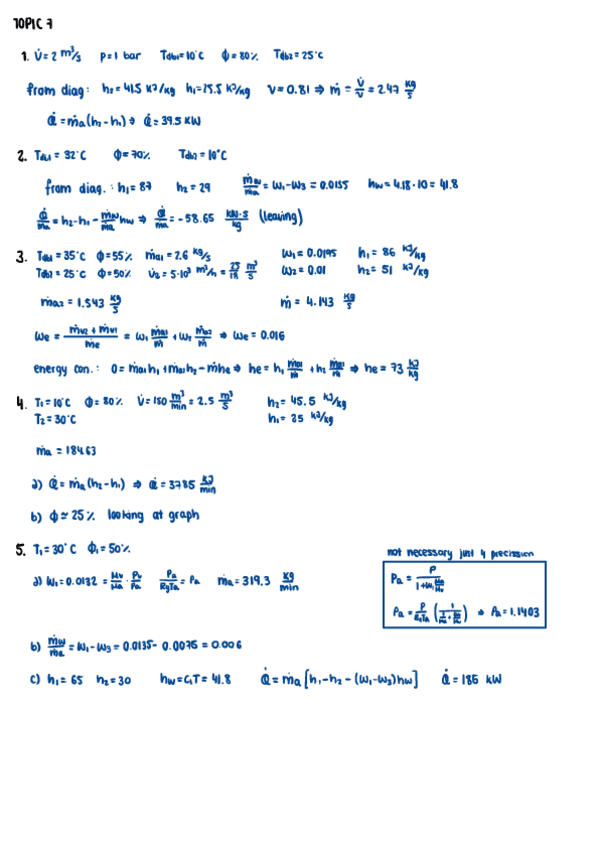 TOPIC 7
1. V̇ = 2 m³/s p = 1 bar Tdb1 = 10°C ϕ = 80% Tdb2 = 25°C
from diag: h2 = 41.5 KJ/kg h1 = 25.5 KJ/kg V = 0.81 ⇒ ṁ = V̇/v = 2.47 kg/s
Q̇ = ṁa(h2 - h1) ⇒ Q̇ = 39.5 KW
2. Tdb1 = 32°C ϕ = 70% Tdb2 = 10°C
from diag. : h1 = 87 h2 = 29 ṁw/ṁa = ω1 - ω3 = 0.0155 hw = 4.18 · 10 = 41.8
Q̇/ṁa = h2 - h1 - ṁw/ṁa hw ⇒ Q̇/ṁa = -58.65 KW·s/kg (leaving)
3. Tdb1 = 35°C ϕ = 55% ṁa1 = 2.6 kg/s ω1 = 0.0195 h1 = 86 KJ/kg
Tdb2 = 25°C ϕ = 50% V̇2 = 5·10³ m³/h = 25/18 m³/s ω2 = 0.01 h2 = 51 KJ/kg
ṁa2 = 1.543 kg/s ṁ = 4.143 kg/s
ωe = ṁv2 + ṁv1 / ṁe = ω1 ṁa1/ṁ + ω2 ṁa2/ṁ ⇒ ωe = 0.016
energy con. : 0 = ṁa1 h1 + ṁa1 h2 - ṁhe ⇒ he = h1 ṁa1/ṁ + h2 ṁa1/ṁ ⇒ he = 73 KJ/kg
4. T1 = 10°C ϕ = 80% V̇ = 150 m³/min = 2.5 m³/s h2 = 45.5 KJ/kg
T2 = 30°C h1 = 25 KJ/kg
ṁa = 184.63
a) Q̇ = ṁa(h2 - h1) ⇒ Q̇ = 3785 KJ/min
b) ϕ ≈ 25% looking at graph
5. T1 = 30°C ϕ1 = 50%
not necessary just 4 precission
a) ω1 = 0.0132 = Mv/Ma · Pv/Pa Pa/RgTa = ρa ṁa = 319.3 kg/min
Pa = P / 1 + ω1 Ma/Mv
ρa = P/RgTa ( ) ⇒ ρa = 1.1403
b) ṁw/ṁa = ω1 - ω3 = 0.0135 - 0.0075 = 0.006
c) h1 = 65 h2 = 30 hw = CiT = 41.8 Q̇ = ṁa [h1 - h2 - (ω1 - ω3)hw] Q̇ = 185 KW